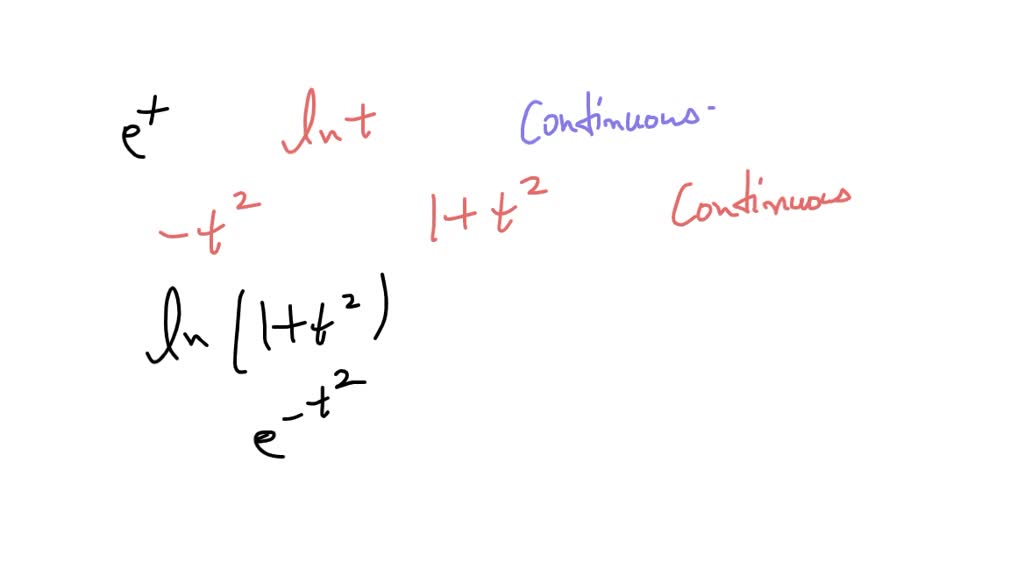 e^t ln t Continuous
-t² 1+t² Continuous
ln (1+t²)
e^-t²